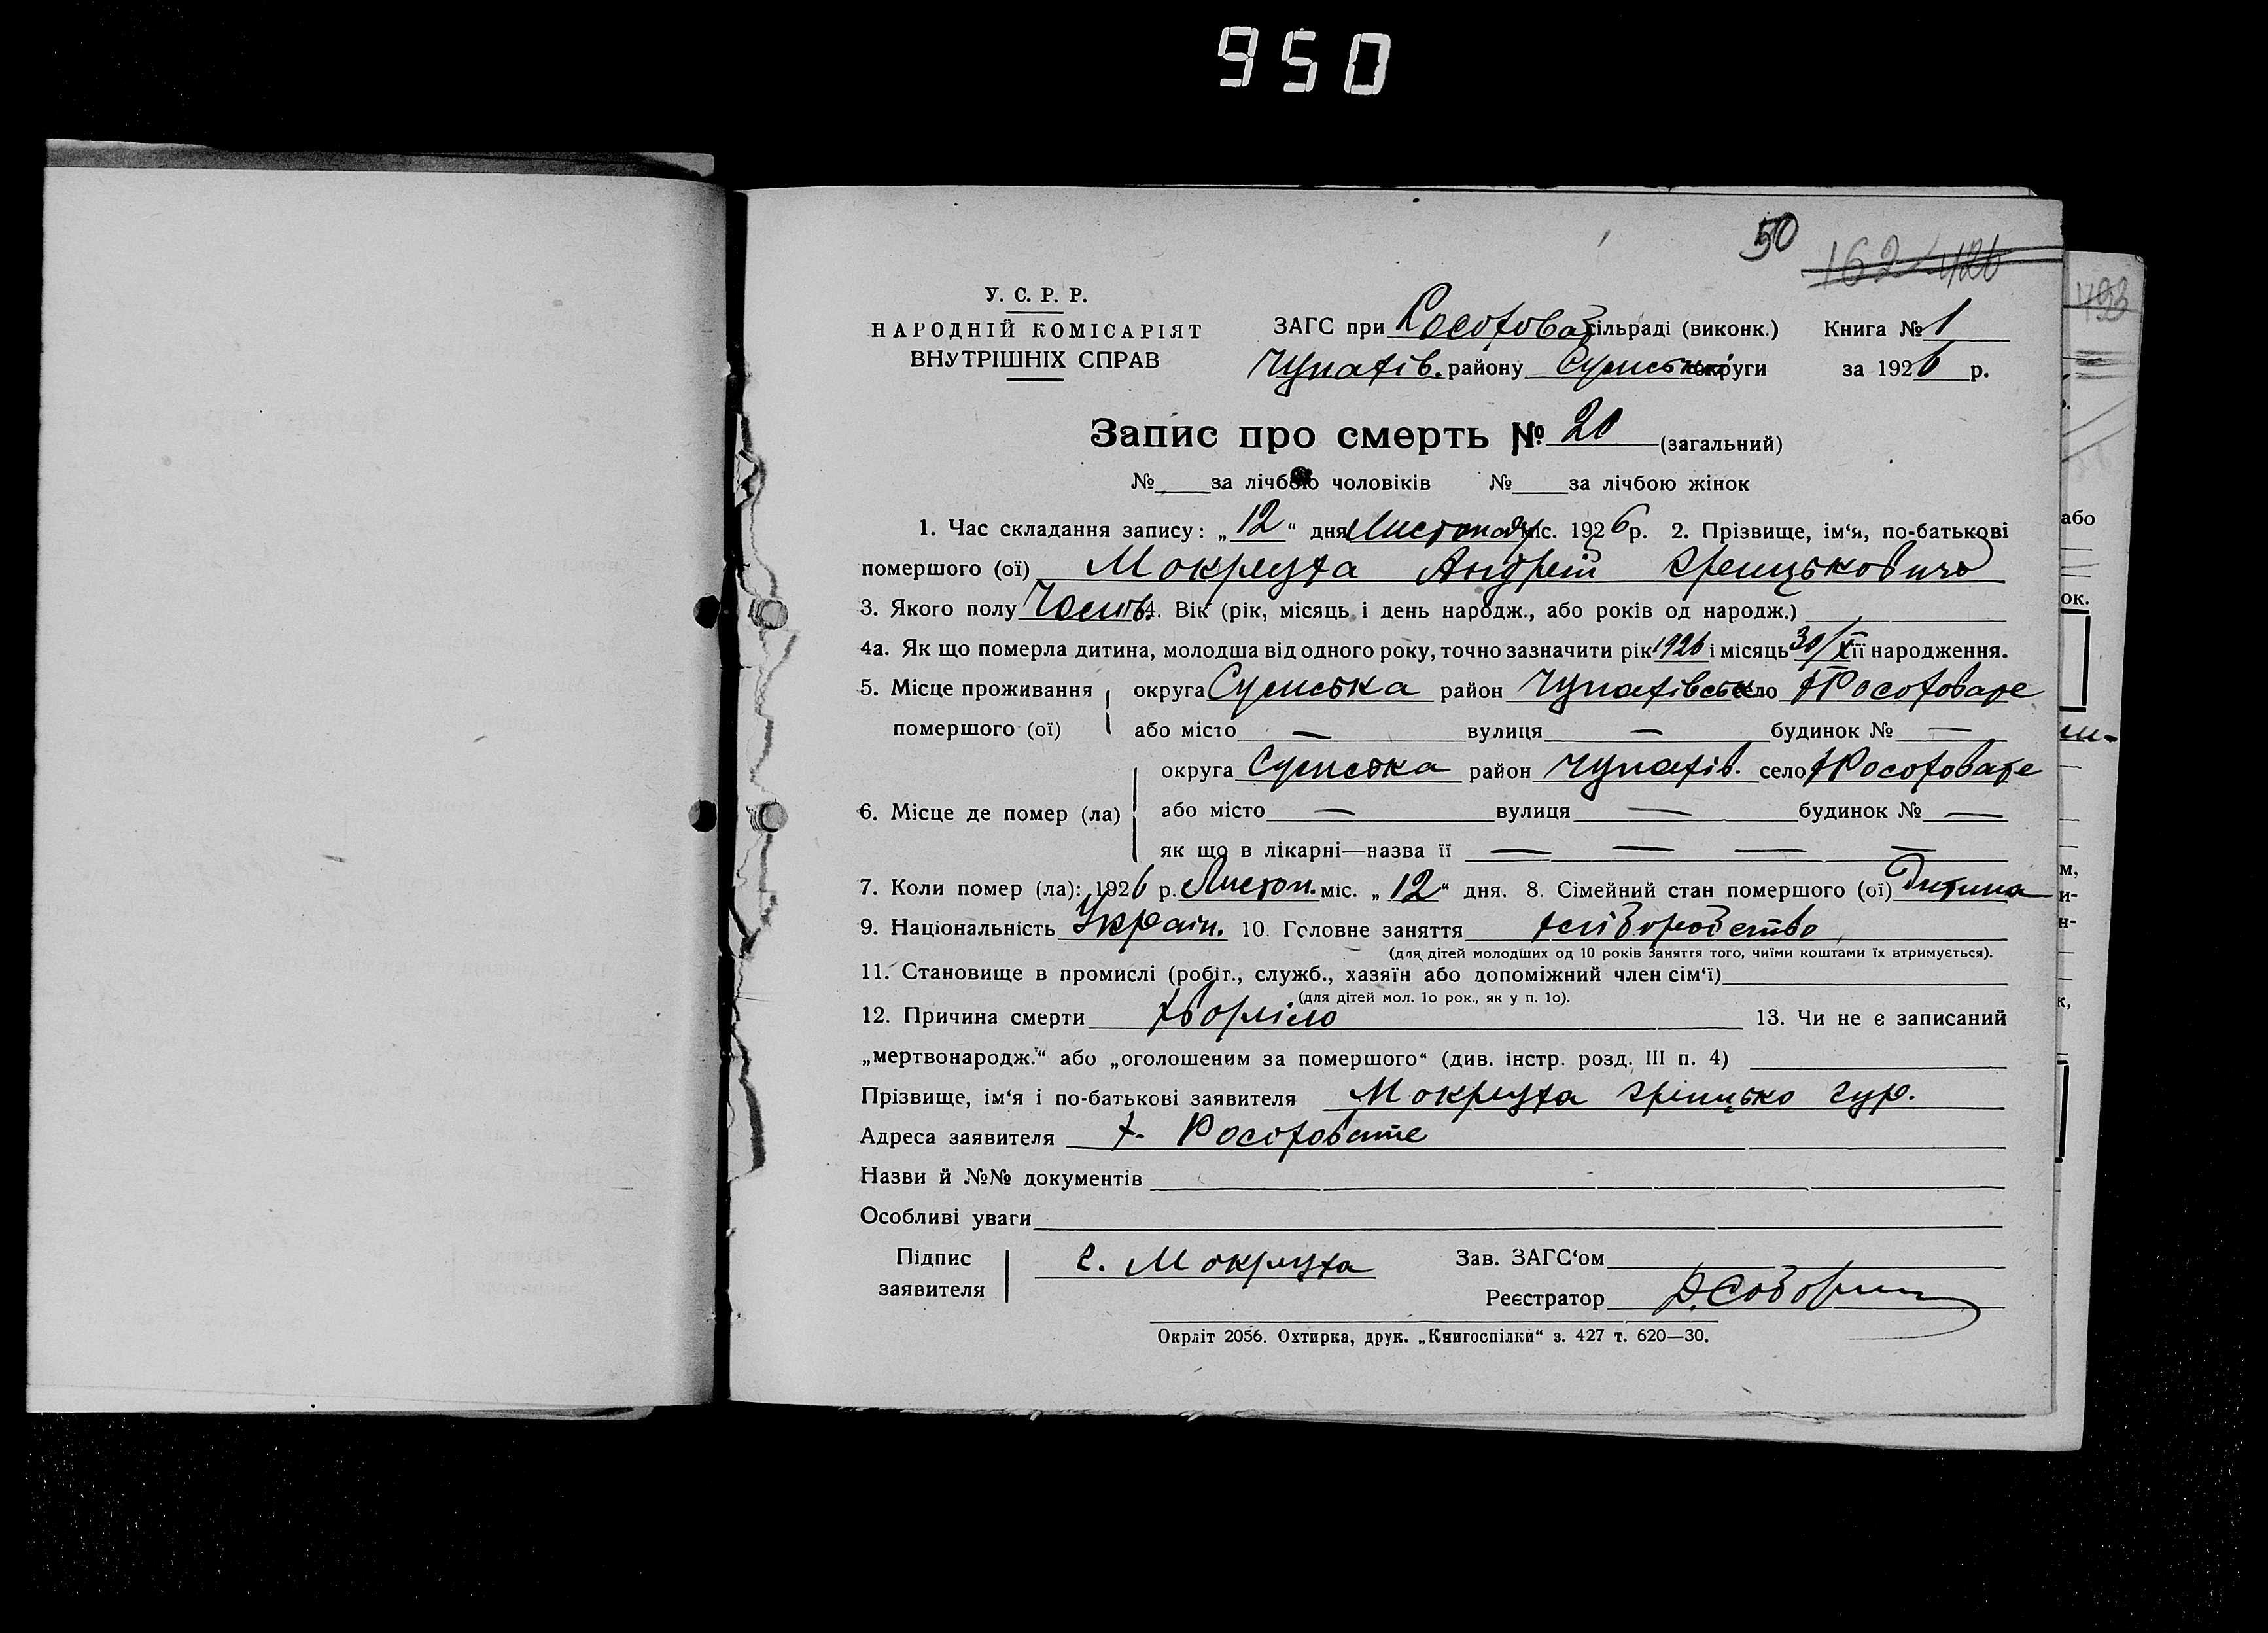 950
50
162 426
1793
У. С. Р. Р.
НАРОДНІЙ КОМІСАРІЯТ
ВНУТРІШНІХ СПРАВ
ЗАГС при Росоховат сільраді (виконк.) Книга № 1
Чупахів. району Сумської округи за 1926 р.
Запис про смерть № 20 (загальний)
№ за лічбою чоловіків № за лічбою жінок
1. Час складання запису: „12“ дня Листопаду міс. 1926 р. 2. Прізвище, ім‘я, по-батькові
помершого (ої) Мокруха Андрей Грицькович
3. Якого полу 4. Вік (рік, місяць і день народж., або років од народж.)
4а. Як що померла дитина, молодша від одного року, точно зазначити рік 1926 і місяць 30/X її народження.
5. Місце проживання округа Сумська район Чупахівськ село Х Росоховате
помершого (ої) або місто — вулиця — будинок № —
округа Сумська район Чупахів. село Х Росоховате
6. Місце де помер (ла) або місто — вулиця — будинок № —
як що в лікарні—назва її — — — —
7. Коли помер (ла): 1926 р. Листоп. міс. „12“ дня. 8. Сімейний стан помершого (ої) Дитина
9. Національність Україн. 10. Головне заняття хліборобство
(для дітей молодших од 10 років Заняття того, чиїми коштами їх втримується).
11. Становище в промислі (робіт., служб., хазяїн або допоміжний член сім‘ї)
(для дітей мол. 1о рок., як у п. 1о).
12. Причина смерти хворіло 13. Чи не є записаний
„мертвонародж.“ або „оголошеним за помершого“ (див. інстр. розд. III п. 4)
Прізвище, ім‘я і по-батькові заявителя Мокруха Грицько Гур.
Адреса заявителя х. Росоховате
Назви й №№ документів
Особливі уваги
Підпис заявителя Г. Мокруха Зав. ЗАГС‘ом
Реєстратор
Окрліт 2056. Охтирка, друк. „Книгоспілки“ з. 427 т. 620—30.